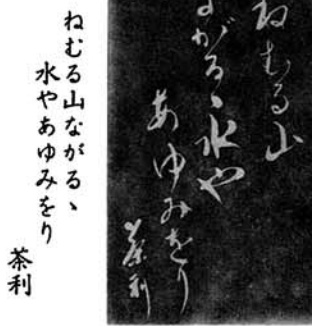 ねむる山ながるゝ
水やあゆみをり
茶利
ねむる山
ながるゝ水や
あゆみをり
茶利